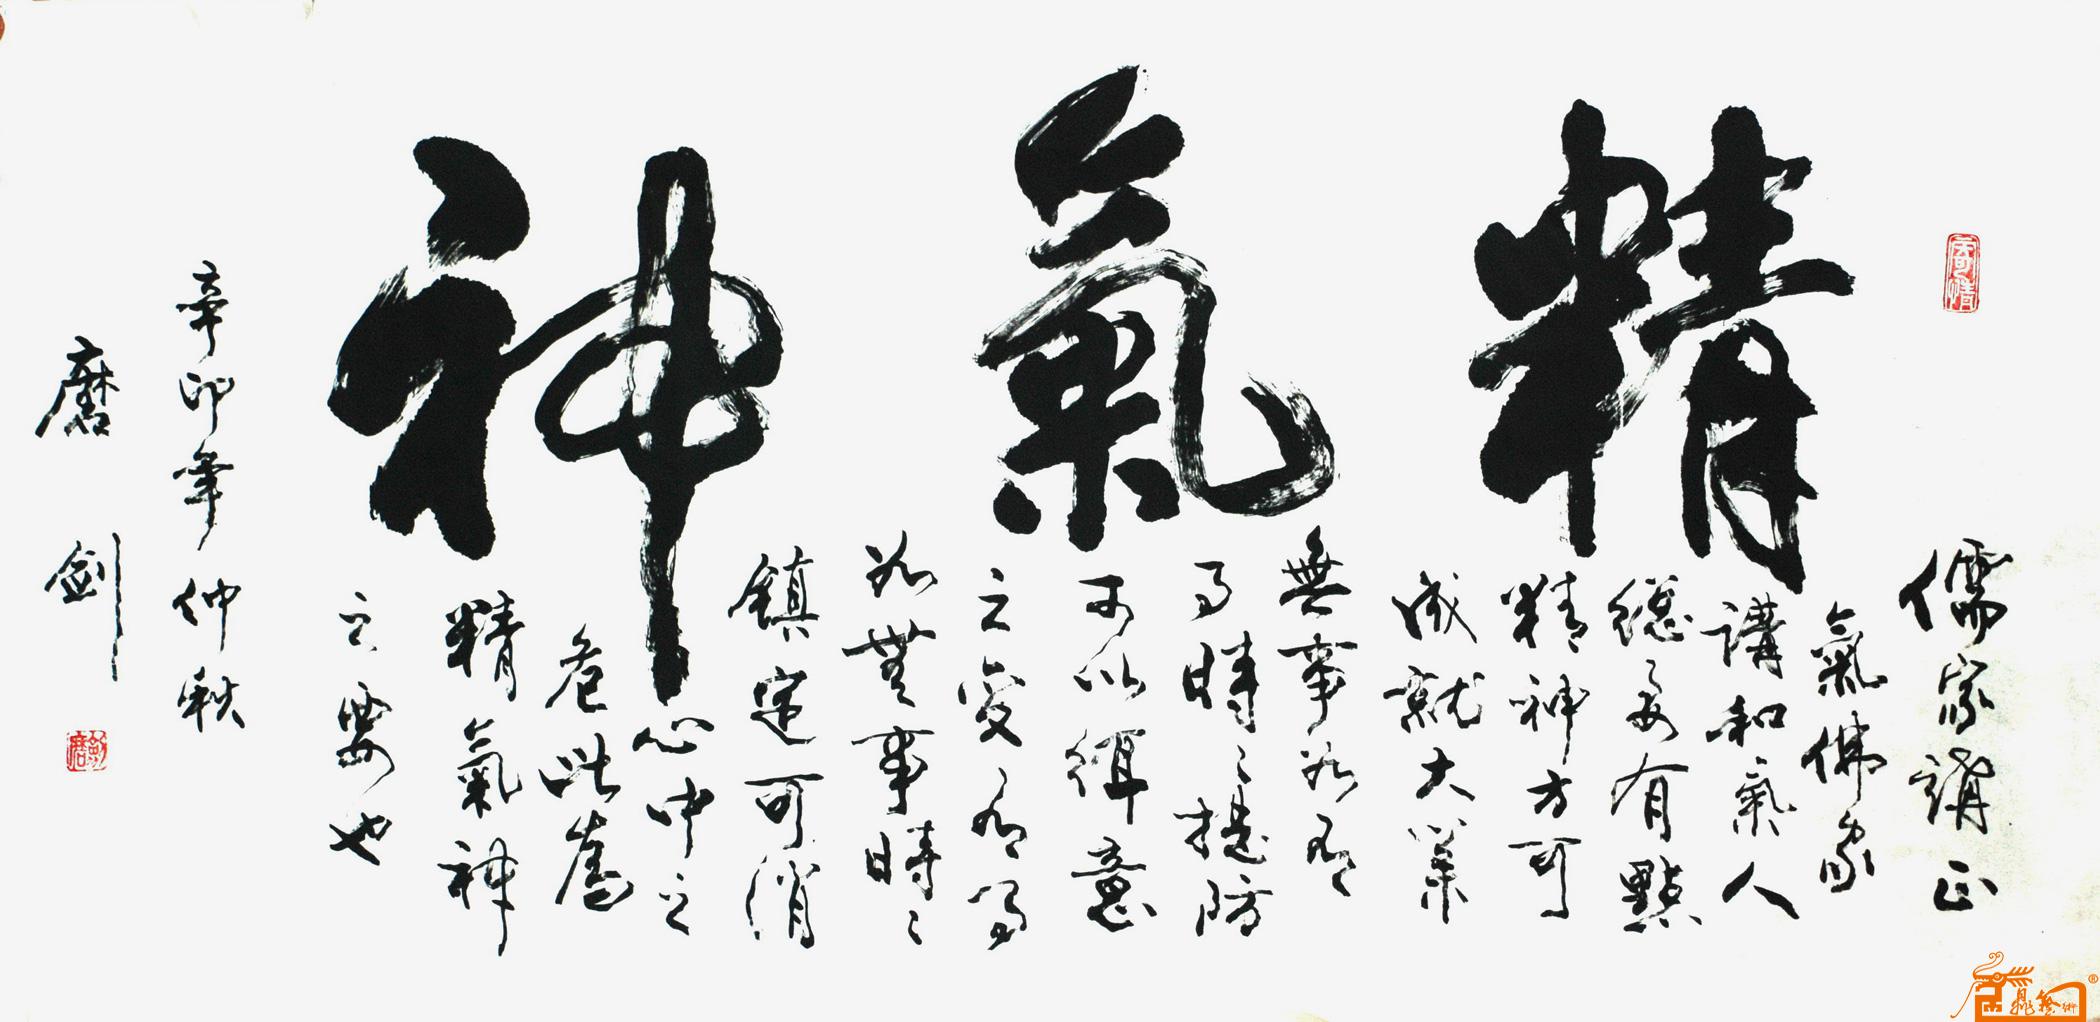 精氣神
儒家講正
氣佛家
講和氣人
總要有點
精神方可
成就大業
無事如有
事時時提防
可以弭意
之變有事
如無事時時
鎮定可消
心中之
危此蓋
精氣神
之要也
辛卯年仲秋
磨劍